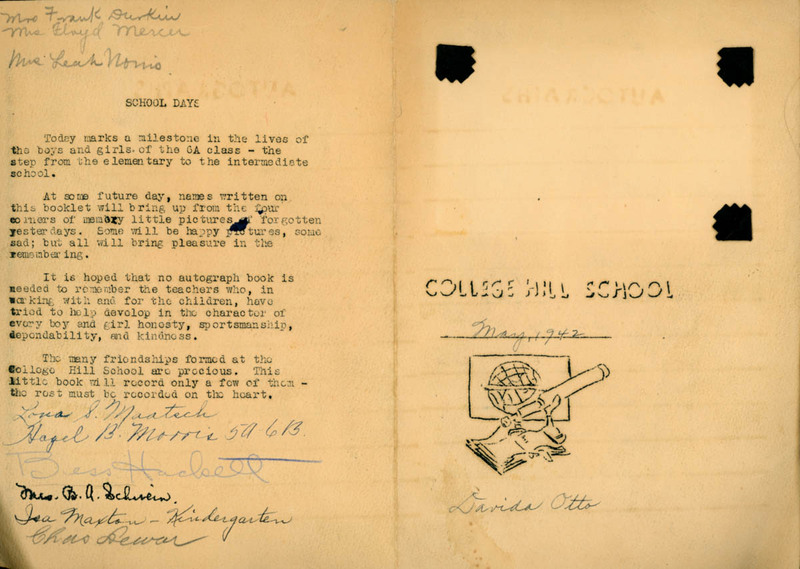 Mrs Frank Durkin
Mrs Floyd Mercer
Mrs Leah Norris
SCHOOL DAYS
Today marks a milestone in the lives of
the boys and girls of the 6A class - the
step from the elementary to the intermediate
school.
At some future day, names written on
this booklet will bring up from the four
corners of memory little pictures of forgotten
yesterdays. Some will be happy pictures, some
sad; but all will bring pleasure in the
remembering.
It is hoped that no autograph book is
needed to remember the teachers who, in
working with and for the children, have
tried to help develop in the character of
every boy and girl honesty, sportsmanship,
dependability, and kindness.
The many friendships formed at the
College Hill School are precious. This
little book will record only a few of them -
the rest must be recorded on the heart.
Lona S. Maatsch
Hazel B. Morris 5A 6B.
Bess Hackell
Mrs. B. A. Schwein.
Isa Maxton - Kindergarten
Chas Dewar
AUTOGRAPHS
COLLEGE HILL SCHOOL
May, 1942
Davida Otto